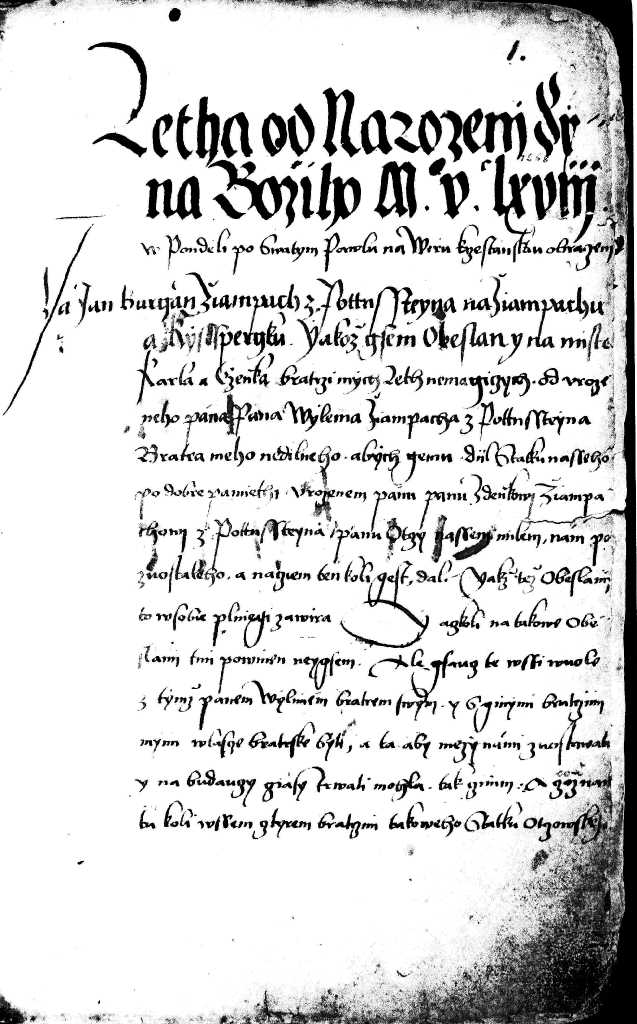 1.
Letha od Narozenj Sy
na Božiho M. v. lxviij
w Pondeli po Swatym Pawlu na Wiru kżestanskau obraczenj
Ja Jan Buryan Žiampach z Pottnssteyna na Žiampachu
a Rysspergku. Yakož gsem Obeslan y na miste
Karla a Czenka bratrzi mých Leth nemagiczych. od vroze
neho pana Pana Wylema Žiampacha z Pottnssteyna
Bratra meho nedilneho. abych gemu dil Statku nasseho
po dobre pamiethi. vrozenem panu panu Zdenkowi Žiampa
chowi z Pottnssteyna panu Otczy nassem milem, nam po
zuostaleho. a na czem ten koli gest, dal. Yakž tež Obeslanj
to w sobie plniegi zawira agkoli na takowe Obe
slani tim powinen neygsem. Ale gsaucz te wssi wuole
z tymž panem Wylimem bratrem swym. y s ginymi bratrzimi
mymi w lasce bratrske byti, a ta aby mezy námi zuostawati
y na budauczy czasy trwati mohla. tak czinim. A což nam
tu koli wssem cztyrem bratrzim takoweho Statku Otczowskeho